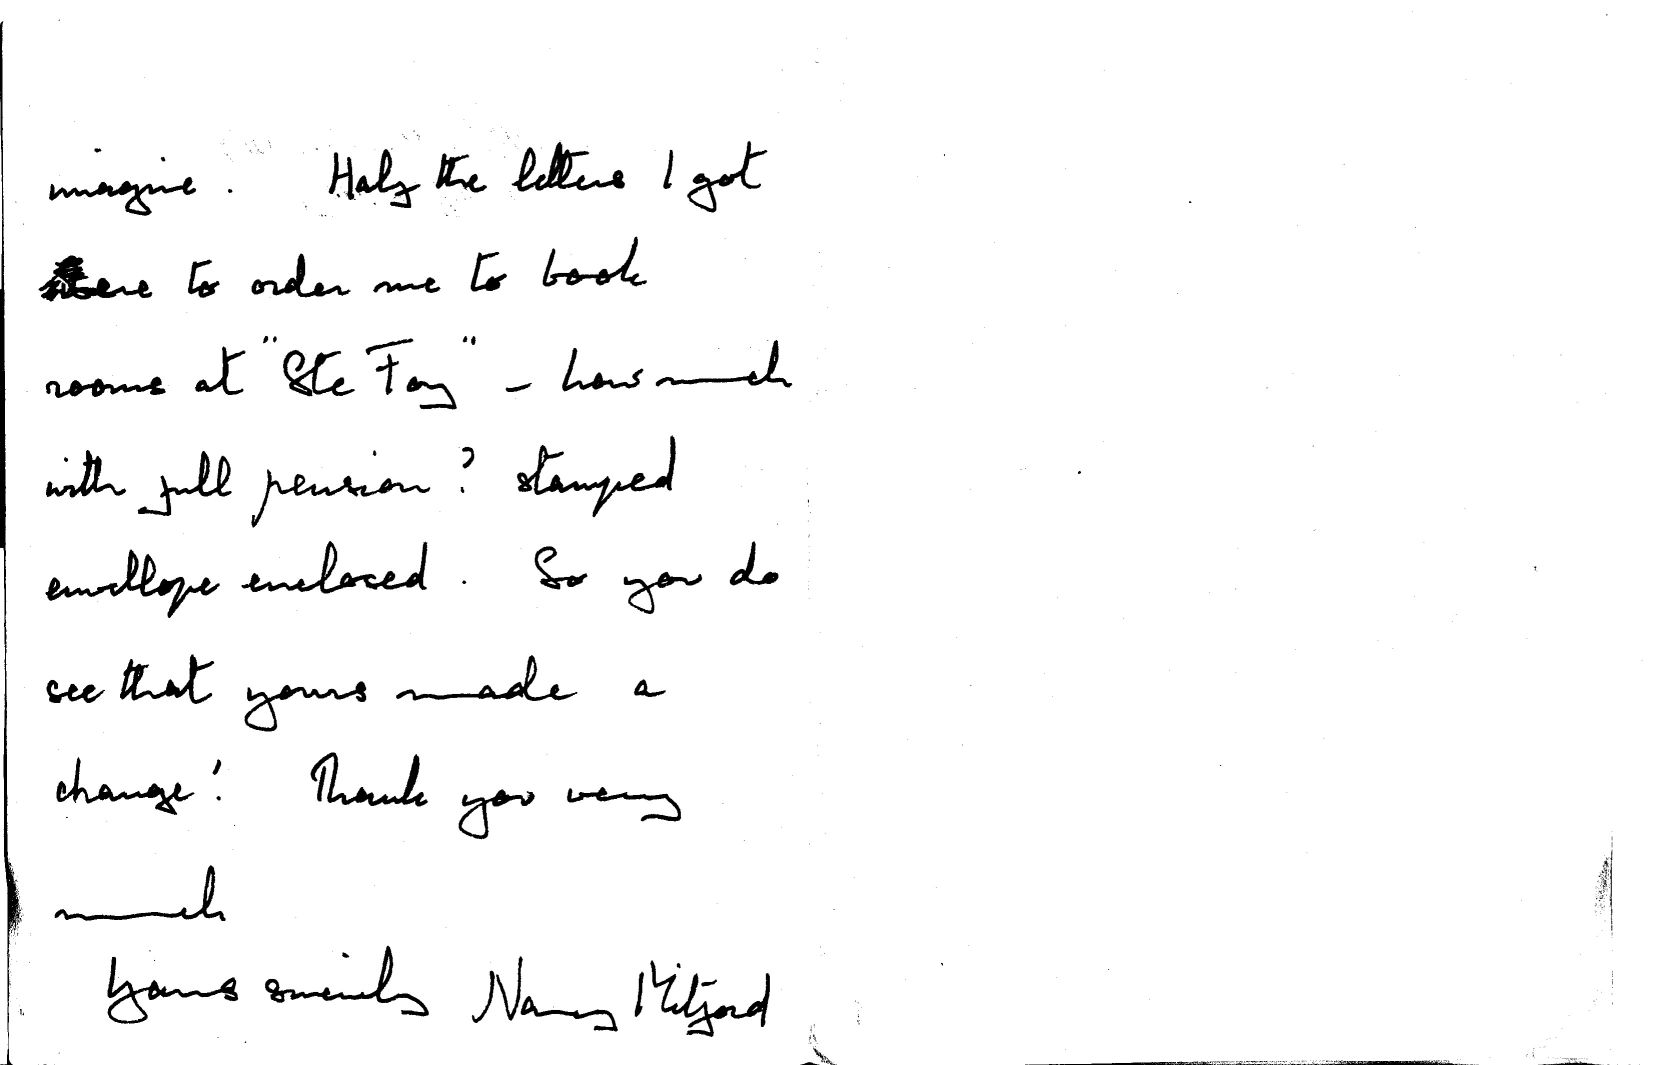 imagine. Half the letters I got
were to order me to book
rooms at "Ste Foy" – how much
with full pension? stamped
envellope enclosed. So you do
see that yours made a
change! Thank you very
much
Yours sincerely Nancy Mitford